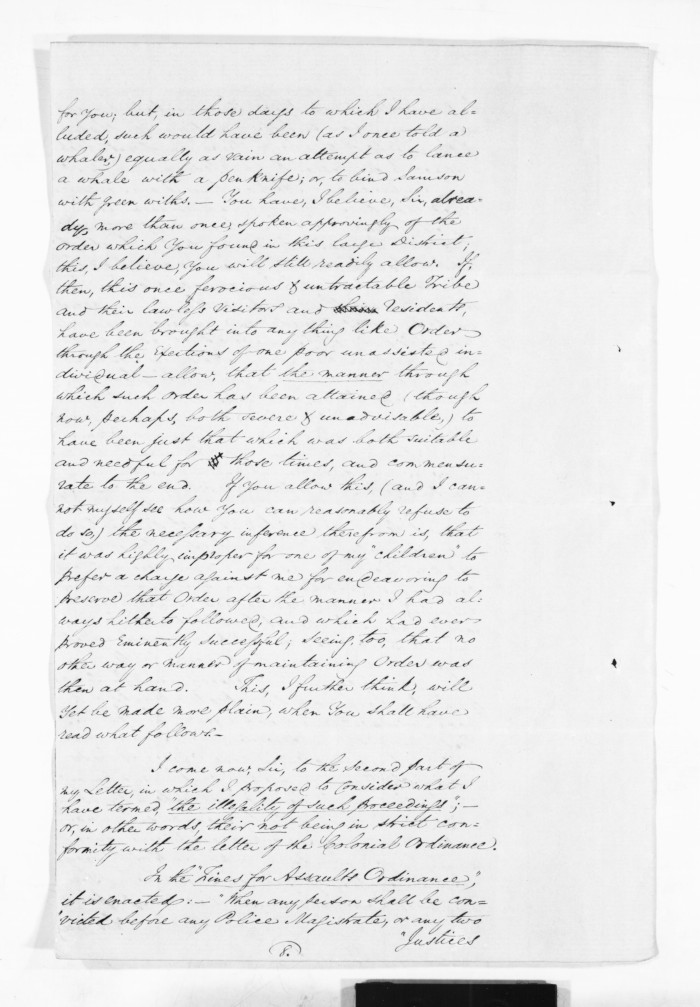 for You; but, in those days to which I have al-
luded, such would have been (as I once told a
whaler) equally as vain an attempt as to lance
a whale with a penknife; or, to bind Samson
with green withs. — You have, I believe, Sir, alrea-
dy, more than once, spoken approvingly of the
order which You found in this large District;
this, I believe, You will still readily allow. If,
then, this once ferocious & untractable Tribe
and their lawless visitors and residents,
have been brought into any thing like Order
through the Exertions of one poor unassisted in-
dividual — allow, that the manner through
which such order has been attained (though
now, perhaps, both severe & unadvisable,) to
have been just that which was both suitable
and needful for those times, and commensu-
rate to the end. If You allow this, (and I can-
not myself see how You can reasonably refuse to
do so,) the necessary inference therefrom is, that
it was highly improper for one of my "children" to
prefer a charge against me for endeavoring to
preserve that Order after the manner I had al-
ways hitherto followed, and which had ever
proved Eminently successful; seeing, too, that no
other way or manner of maintaining Order was
then at hand. This, I further think, will
yet be made more plain, when You shall have
read what follows.—
I come now, Sir, to the second part of
my Letter, in which I proposed to Consider what I
have termed, "the illegality of such proceedings"; —
or, in other words, their not being in strict con-
formity with the letter of the Colonial Ordinance.
In the "Fines for Assaults Ordinance",
it is enacted: — "When any person shall be con-
"victed before any Police Magistrate, or any two
"Justices
8.